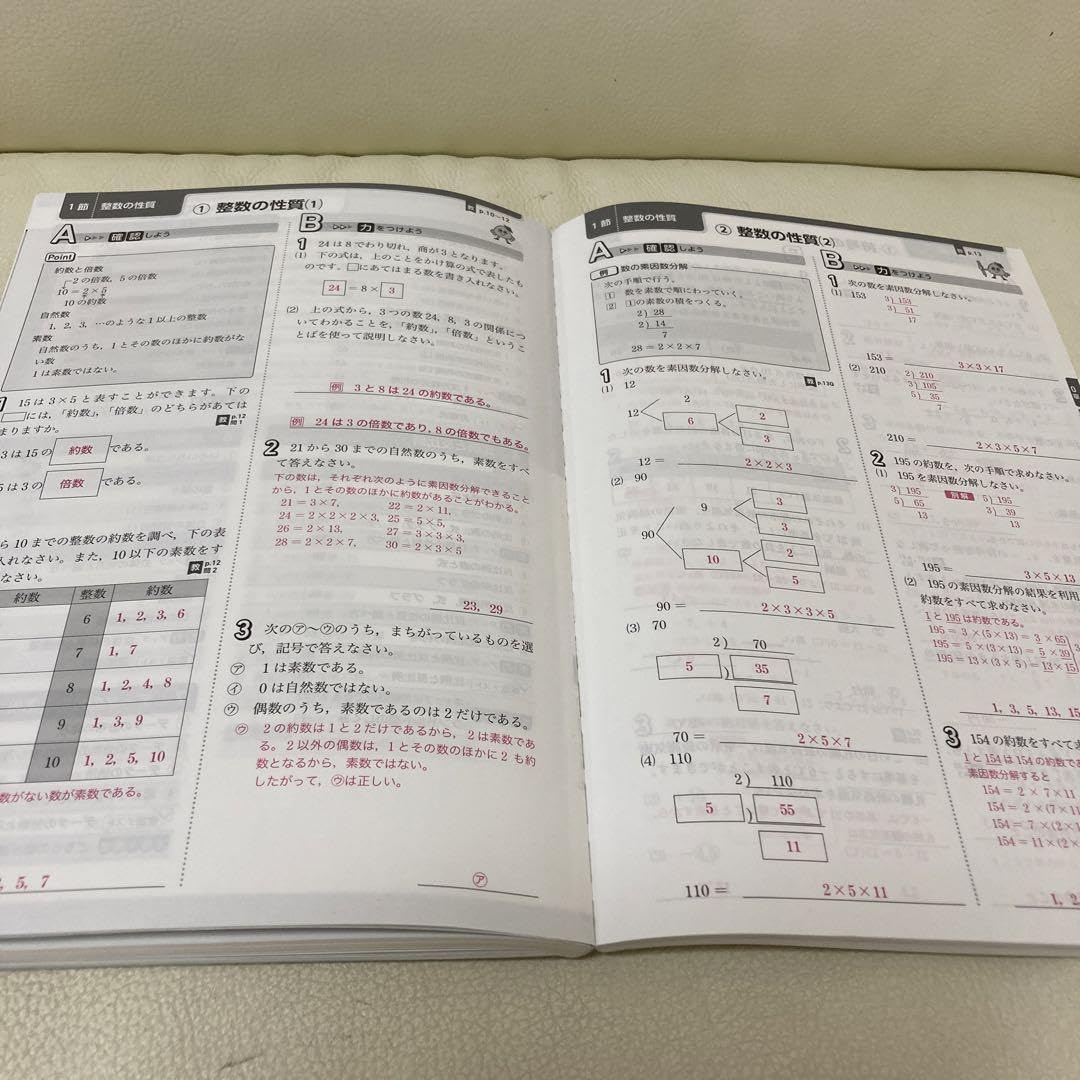 1節 整数の性質
① 整数の性質(1)
教 p.10~12
A 確認しよう
Point
約数と倍数
2の倍数，5の倍数
10＝2×5
10の約数
自然数
1，2，3，…のような1以上の整数
素数
自然数のうち，1とその数のほかに約数がな
い数
1は素数ではない。
15は3×5と表すことができます。下の
には，「約数」，「倍数」のどちらがあては
まりますか。
教 p.12 問1
3は15の 約数 である。
5は3の 倍数 である。
ら10までの整数の約数を調べ，下の表
入れなさい。また，10以下の素数をす
なさい。
教 p.12 問2
約数 整数 約数
6 1，2，3，6
7 1，7
8 1，2，4，8
9 1，3，9
10 1，2，5，10
数がない数が素数である。
，5，7
B 力をつけよう
1 24は8でわり切れ，商が3となります。
(1) 下の式は，上のことをかけ算の式で表したも
のです。□にあてはまる数を書き入れなさい。
24 ＝8× 3
(2) 上の式から，3つの数24，8，3の関係につ
いてわかることを，「約数」，「倍数」というこ
とばを使って説明しなさい。
例 3と8は24の約数である。
例 24は3の倍数であり，8の倍数でもある。
2 21から30までの自然数のうち，素数をすべ
て答えなさい。
下の数は，それぞれ次のように素因数分解できること
から，1とその数のほかに約数があることがわかる。
21＝3×7， 22＝2×11，
24＝2×2×2×3，25＝5×5，
26＝2×13， 27＝3×3×3，
28＝2×2×7， 30＝2×3×5
23，29
3 次の㋐〜㋒のうち，まちがっているものを選
び，記号で答えなさい。
㋐ 1は素数である。
㋑ 0は自然数ではない。
㋒ 偶数のうち，素数であるのは2だけである。
㋒ 2の約数は1と2だけであるから，2は素数であ
る。2以外の偶数は，1とその数のほかに2も約
数となるから，素数ではない。
したがって，㋒は正しい。
㋐
1節 整数の性質
② 整数の性質(2)
教 p.13
A 確認しよう
例 数の素因数分解
次の手順で行う。
1 数を素数で順にわっていく。
2 1の素数の積をつくる。
2) 28
2) 14
7
28＝2×2×7
1 次の数を素因数分解しなさい。
教 p.130
(1) 12
2
12
6
2
3
12＝ 2×2×3
(2) 90
9
3
3
90
10
2
5
90＝ 2×3×3×5
(3) 70
2) 70
5 ) 35
7
70＝ 2×5×7
(4) 110
2) 110
5 ) 55
11
110＝ 2×5×11
B 力をつけよう
1 次の数を素因数分解しなさい。
(1) 153
3) 153
3) 51
17
153＝ 3×3×17
(2) 210
2) 210
3) 105
5) 35
7
210＝ 2×3×5×7
2 195の約数を，次の手順で求めなさい。
(1) 195を素因数分解しなさい。
3) 195 別解 5) 195
5) 65 3) 39
13 13
195＝ 3×5×13
(2) 195の素因数分解の結果を利用
約数をすべて求めなさい。
1と195は約数である。
195＝3×(5×13)＝3×65
195＝5×(3×13)＝5×39
195＝13×(3×5)＝13×15
1，3，5，13，15
3 154の約数をすべて求
1と154は154の約数であ
素因数分解すると
154＝2×7×11
154＝2×(7×11
154＝7×(2×1
154＝11×(2×
1，2